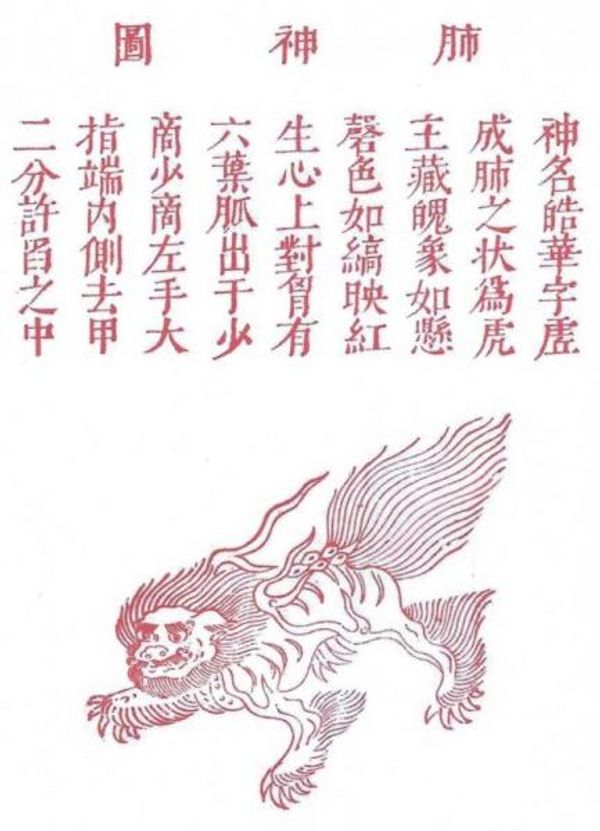 肺神圖
神名皓華字虛
成肺之状為虎
主藏魄象如懸
磬色如縞映紅
生心上對胷有
六葉脈出于少
商少商左手大
指端內側去甲
二分許㕯之中